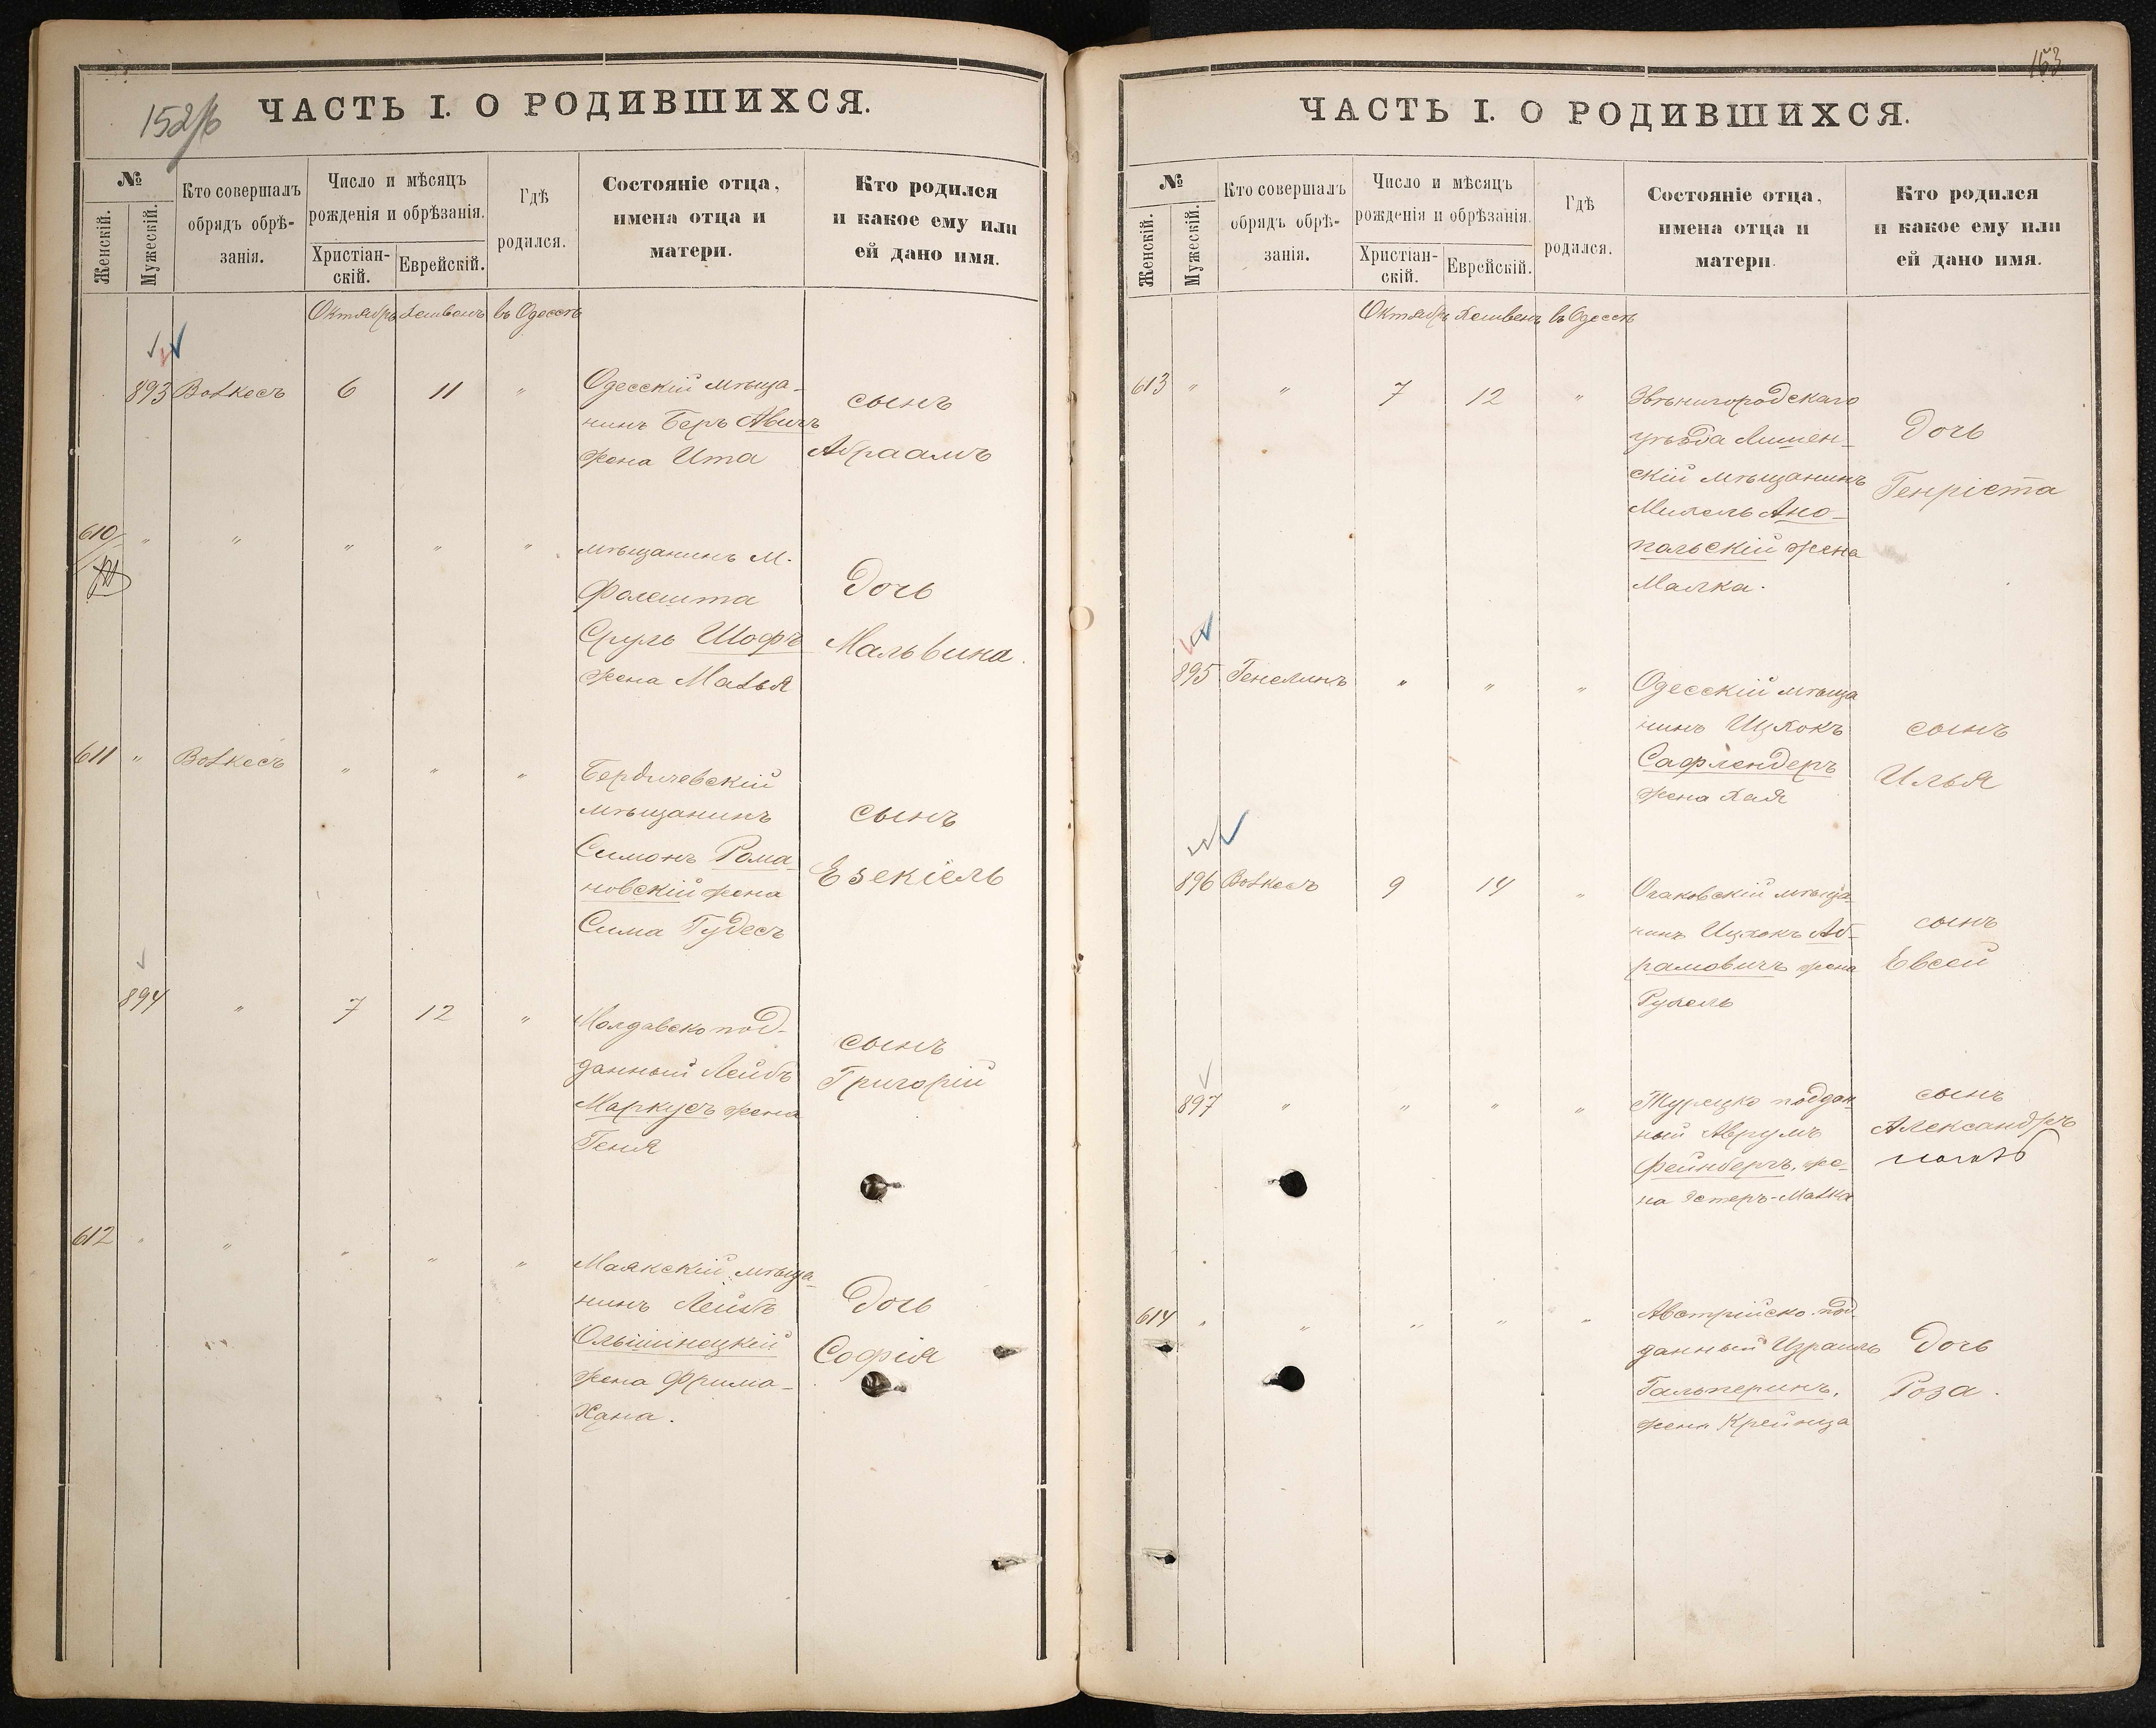 152/б
ЧАСТЬ I. О РОДИВШИХСЯ.
№
Женскій.
Мужескій.
Кто совершалъ
обрядъ обрѣ-
занія.
Число и мѣсяцъ
рожденія и обрѣзанія.
Христіан-
скій.
Еврейскій.
Гдѣ
родился.
Состояніе отца,
имена отца и
матери.
Кто родился
и какое ему или
ей дано имя.
Октябрь Хешванъ въ Одессѣ
893 Волкесъ 6 11 "
Одесскій мѣща-
нинъ Беръ Авичъ
жена Ита
сынъ
Абраамъ
610 " " " " "
мѣщанинъ м.
Фалешта
Сруль Шофъ
жена Малья
Дочь
Мальвина.
611 " Волкесъ " " "
Бердичевскій
мѣщанинъ
Симонъ Рома-
новскій жена
Сима Гудесъ
сынъ
Езекіель
894 " 7 12 "
Молдавско под-
данный Лейбъ
Маркусъ жена
Геня
сынъ
Григорій
612 " " " " "
Маякскій мѣща-
нинъ Лейбъ
Ольшинецкій
жена Фрима-
Хана.
Дочь
Софія
153
ЧАСТЬ I. О РОДИВШИХСЯ.
№
Женскій.
Мужескій.
Кто совершалъ
обрядъ обрѣ-
занія.
Число и мѣсяцъ
рожденія и обрѣзанія.
Христіан-
скій.
Еврейскій.
Гдѣ
родился.
Состояніе отца,
имена отца и
матери.
Кто родился
и какое ему или
ей дано имя.
Октябрь Хешвенъ въ Одессѣ
613 " " 7 12 "
Звѣнигородскаго
уѣзда Лишен-
скій мѣщанинъ
Михель Ано-
польскій жена
Малка.
Дочь
Генріета
895 Генелинъ " " "
Одесскій мѣща
нинъ Ицхокъ
Сафлендеръ
жена Хая
сынъ
Илья
896 Волкесъ 9 14 "
Очаковскій мѣща-
нинъ Ицхокъ Аб-
рамовичъ жена
Рухель
сынъ
Евсей
897 " " " "
Турецко поддан
ный Аврумъ
Фейнбергъ, же-
на Эстеръ-Малка
сынъ
Александръ
614 " " " " "
Австрійско под-
данный Израиль
Гальперинъ,
жена Крейнца
Дочь
Роза.